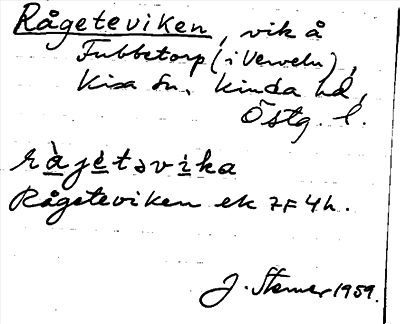 Rågeteviken, vik å
Fubbetorp (i Verveln),
Kisa sn. Kinda hd,
Östg. l.
råjetəvika
Rågeteviken ek 7F 4h.
J. Sterner 1959.